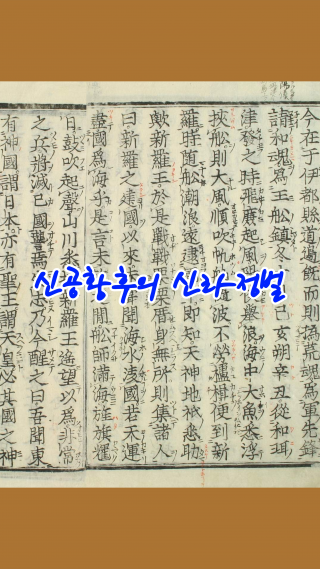 신공황후의 신라정벌
今在于伊都縣道邊既而則撝荒魂爲軍先鋒
請和魂爲王船鎮冬己亥朔辛丑從和珥
津發之時飛廉起風舉浪海中大魚悉浮
扶船則大風順吹帆舶隨波不勞㯭楫便到新
羅時隨船潮浪遠逮即知天神地祇悉助
歟新羅王於是戰戰厝身無所則集諸人
曰新羅之建國以來未聞海水凌國若天運
盡國爲海乎是言未間船師滿海旌旗耀
日鼓吹起聲山川悉新羅王遙望以爲非常
之兵將滅己國讋焉志乃今醒之曰吾聞東
有神國謂日本亦有聖王謂天皇必其國之神